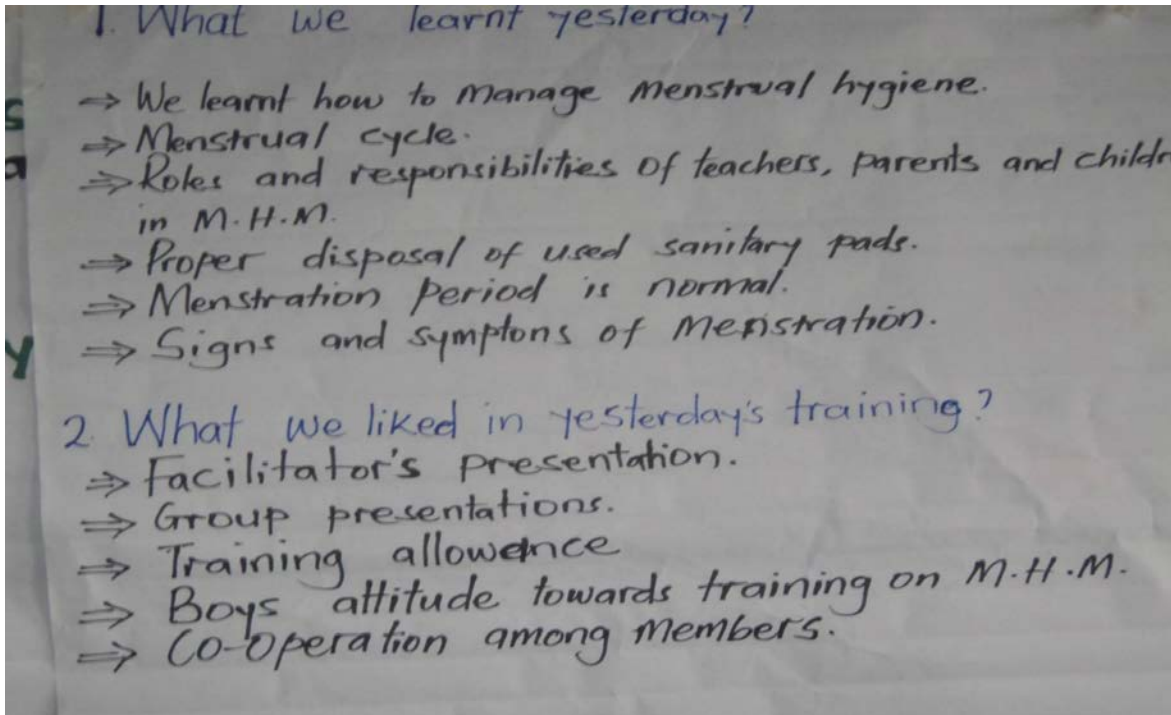 1. What we learnt yesterday?
⇒ We learnt how to manage menstrual hygiene.
⇒ Menstrual cycle.
⇒ Roles and responsibilities of teachers, parents and childr
in M.H.M.
⇒ Proper disposal of used sanitary pads.
⇒ Menstration period is normal.
⇒ Signs and symptons of menstration.
2. What we liked in yesterday's training?
⇒ Facilitator's presentation.
⇒ Group presentations.
⇒ Training allowance
⇒ Boys attitude towards training on M.H.M.
⇒ Co-operation among members.